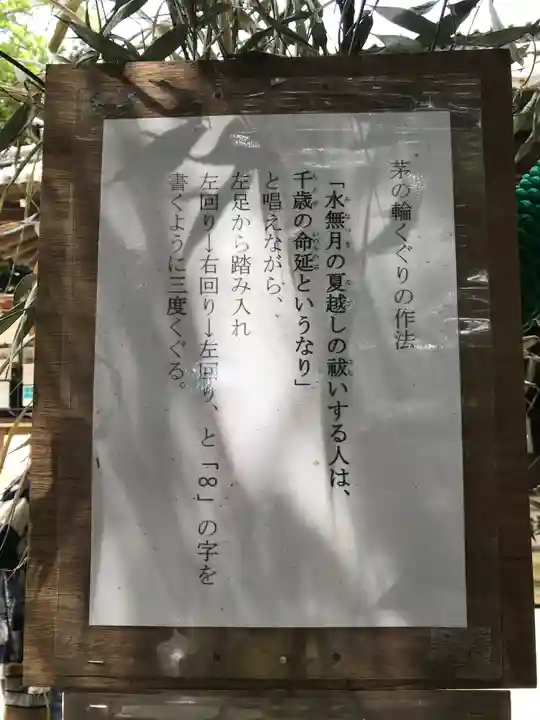 茅の輪くぐりの作法
「水無月の夏越しの祓いする人は、
千歳の命延というなり」
と唱えながら、
左足から踏み入れ
左回り→右回り→左回り、と「8」の字を
書くように三度くぐる。